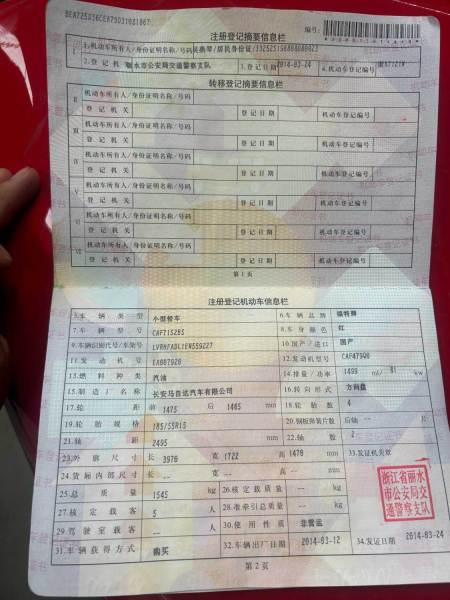 注册登记摘要信息栏
编号:
1.机动车所有人/身份证明名称/号码
2.登记机关 丽水市公安局交通警察支队 3.登记日期 2014-03-24 4.机动车登记编号
转移登记摘要信息栏
Ⅱ 机动车所有人/身份证明名称/号码
登记机关 登记日期 机动车登记编号
Ⅲ 机动车所有人/身份证明名称/号码
登记机关 登记日期 机动车登记编号
Ⅳ 机动车所有人/身份证明名称/号码
登记机关 登记日期 机动车登记编号
Ⅴ 机动车所有人/身份证明名称/号码
登记机关 登记日期 机动车登记编号
Ⅵ 机动车所有人/身份证明名称/号码
登记机关 登记日期 机动车登记编号
Ⅶ 机动车所有人/身份证明名称/号码
登记机关 登记日期 机动车登记编号
第1页
注册登记机动车信息栏
5.车辆类型 小型轿车 6.车辆品牌 福特牌
7.车辆型号 CAF7152B5 8.车身颜色 红
9.车辆识别代号/车架号 10.国产/进口 国产
11.发动机号 12.发动机型号 CAF479Q0
13.燃料种类 汽油 14.排量/功率 1499 ml/ 81 kw
15.制造厂名称 长安马自达汽车有限公司 16.转向形式 方向盘
17.轮距 前 1475 后 1465 mm 18.轮胎数 4
19.轮胎规格 185/55R15 20.钢板弹簧片数 后轴 -- 片
21.轴距 2495 mm 22.轴数 2
23.外廓尺寸 长 3976 宽 1722 高 1478 mm 33.发证机关章
24.货厢内部尺寸 长 -- 宽 -- 高 -- mm
25.总质量 1545 kg 26.核定载质量 -- kg
27.核定载客 5 人 28.准牵引总质量 -- kg
29.驾驶室载客 -- 人 30.使用性质 非营运
31.车辆获得方式 购买 32.车辆出厂日期 2014-03-12 34.发证日期 2014-03-24
浙江省丽水
市公安局交
通警察支队
第2页